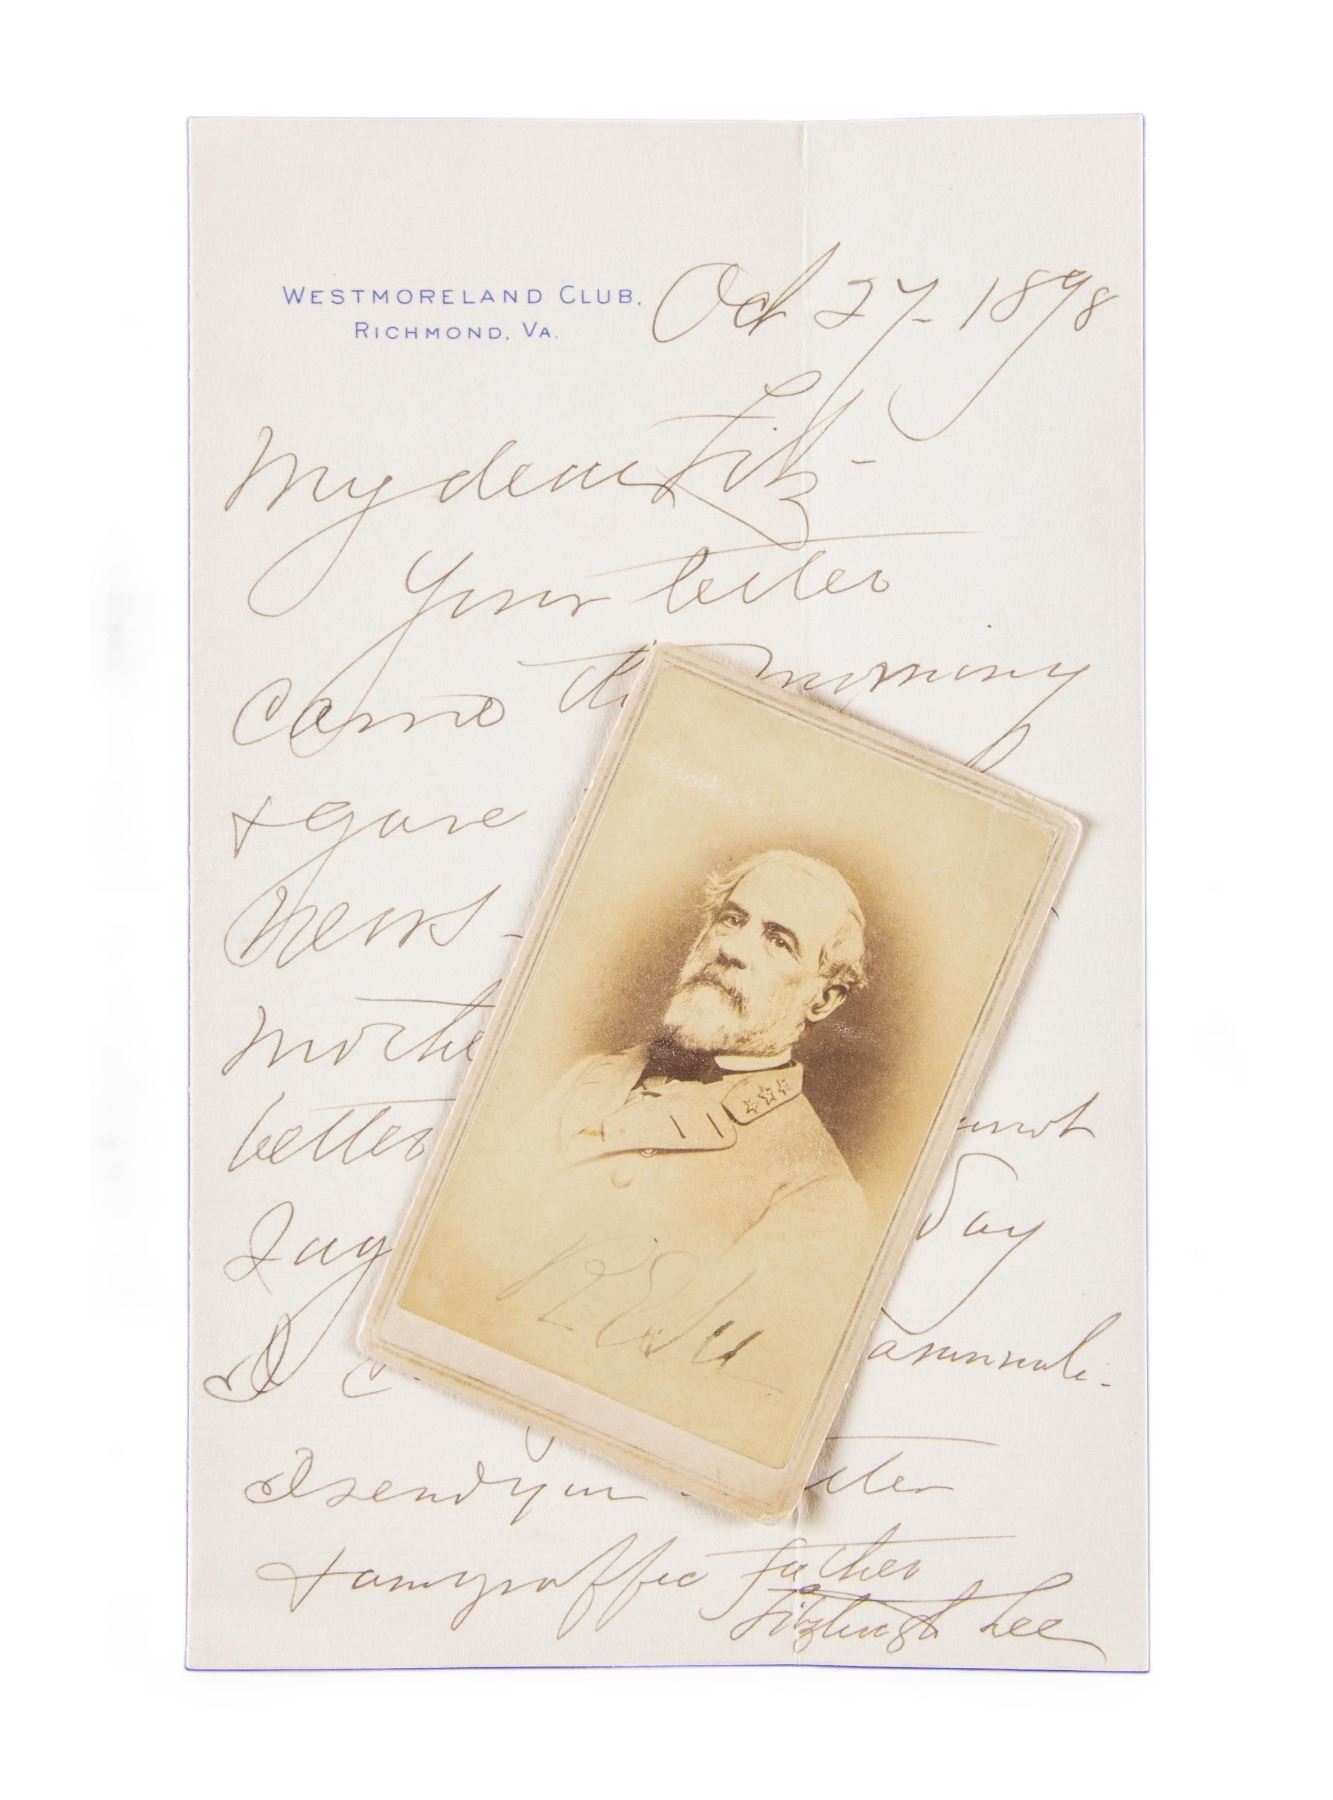 WESTMORELAND CLUB,
RICHMOND, VA.
Oct 27 - 1898
My dear Fitz -
Your letter
Came this morning
& gave
news -
Mothe
better
not
day
I
I send you
& am yr affec father
Fitzhugh Lee
R E Lee